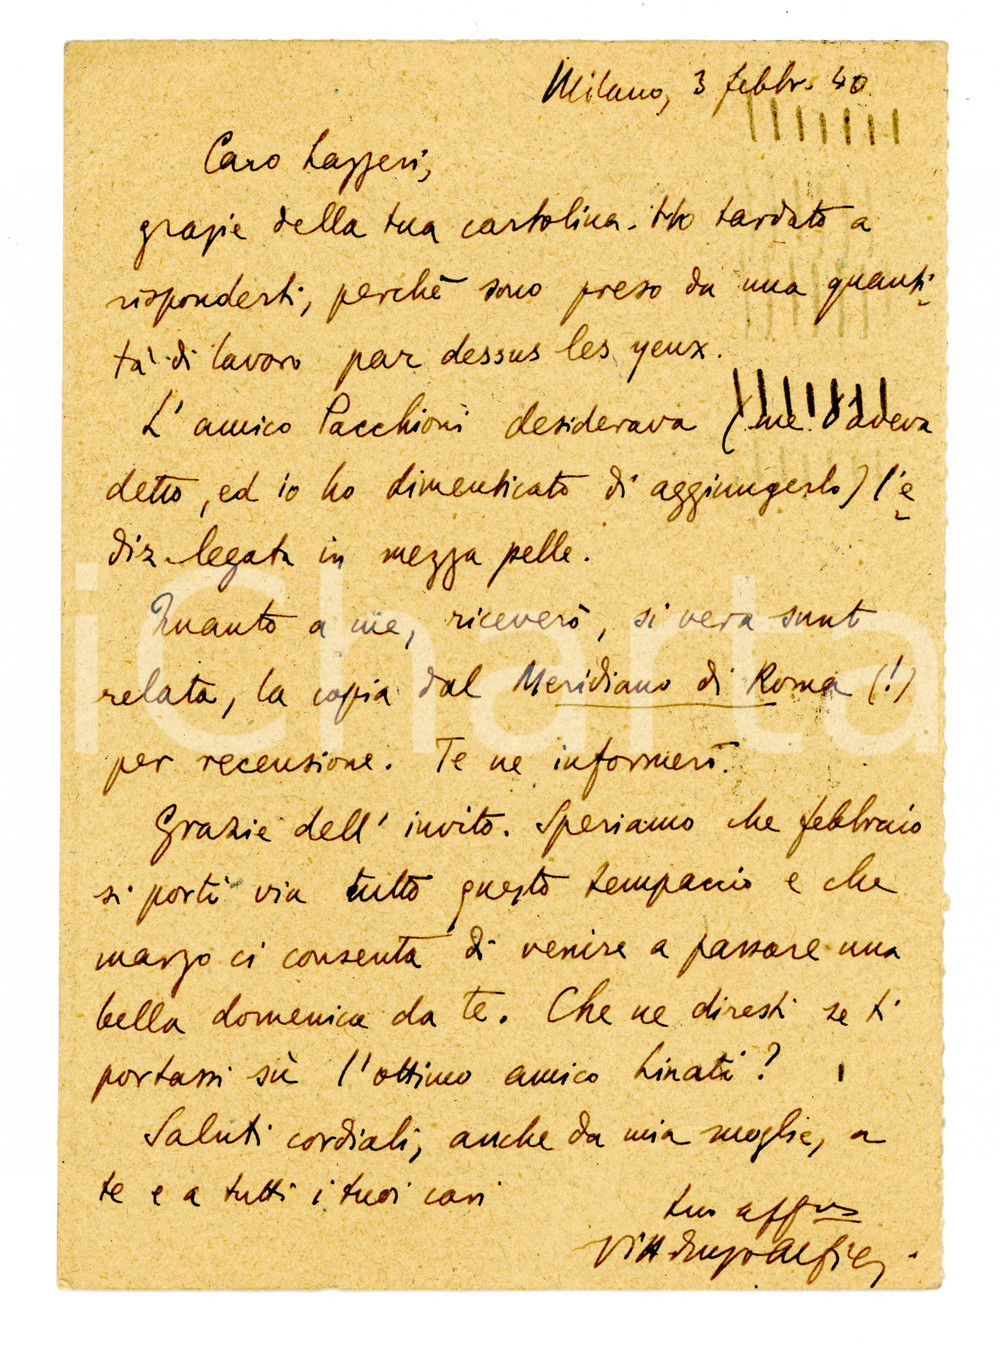 Milano, 3 febbr. 40
Caro Lazzeri,
grazie della tua cartolina. Ho tardato a
risponderti, perchè sono preso da una quanti-
tà di lavoro par dessus les yeux.
L'amico Pacchioni desiderava (me l'aveva
detto, ed io ho dimenticato di aggiungerlo) l'e-
diz. legata in mezza pelle.
Quanto a me, riceverò, si vera sunt
relata, la copia dal Meridiano di Roma (!)
per recensione. Te ne informerò.
Grazie dell'invito. Speriamo che febbraio
si porti via tutto questo tempaccio e che
marzo ci consenta di venire a passare una
bella domenica da te. Che ne diresti se ti
portassi sù l'ottimo amico Linati?
Saluti cordiali, anche da mia moglie, a
te e a tutti i tuoi cari
tuo affmo
Vitt. Enzo Alfieri
iCharta